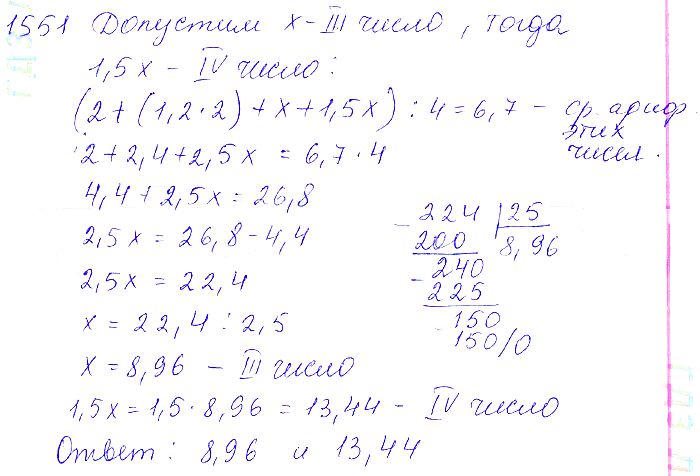 1551 Допустим x - III число, тогда
1,5x - IV число:
(2+(1,2·2)+x+1,5x):4=6,7 - ср. арифр.
этих
2+2,4+2,5x = 6,7·4 чисел.
4,4+2,5x=26,8
2,5x = 26,8-4,4
2,5x = 22,4
x = 22,4:2,5
x = 8,96 - III число
1,5x=1,5·8,96 = 13,44 - IV число
Ответ: 8,96 и 13,44
- 224 | 25
200 8,96
- 240
225
150
150/0